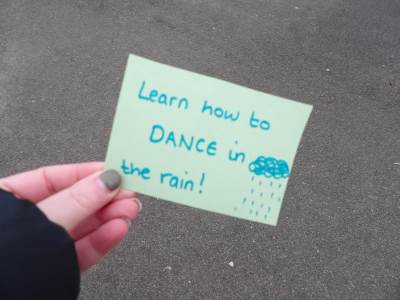 Learn how to
DANCE in
the rain!